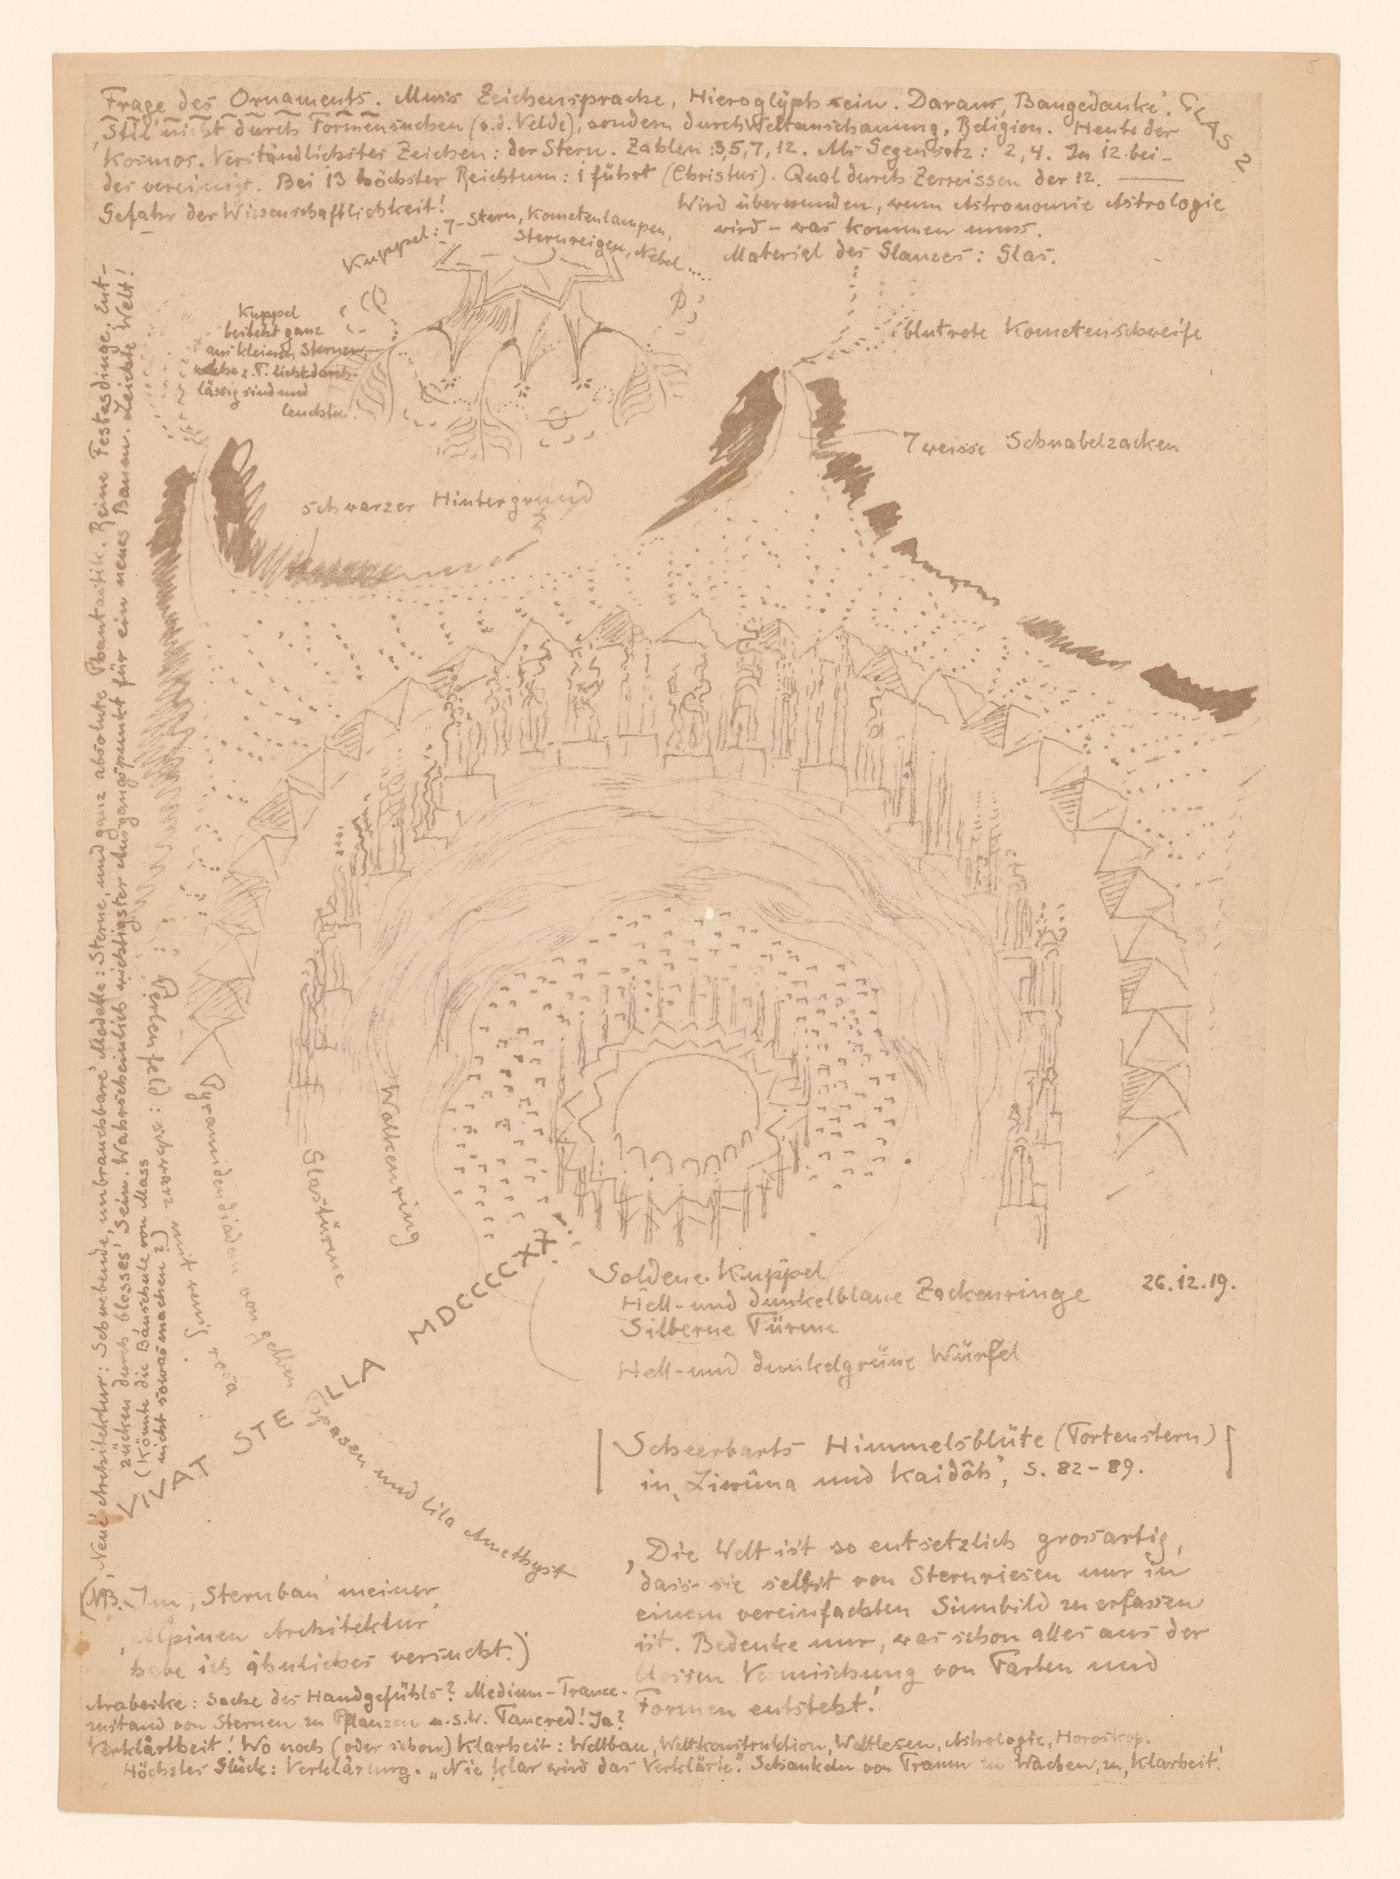 Frage des Ornaments. Muss Zeichensprache, Hieroglyph sein. Daraus 'Baugedanke'. GLAS 2
'Stil' nicht durch Formensuchen (v.d. Velde), sondern durch Weltanschauung, Religion. Heute der
Kosmos. Verständlichstes Zeichen: der Stern. Zahlen: 3, 5, 7, 12. Als Gegensatz: 2, 4. In 12 bei-
des vereinigt. Bei 13 höchster Reichtum: 1 führt (Christus). Qual durch Zerreissen der 12. —
Gefahr der Wissenschaftlichkeit!
Wird überwunden, wenn Astronomie Astrologie
wird – was kommen muss.
Material des Glanzes: Glas.
Kuppel: 7-Stern, Kometenlampen,
Sternreigen, Nebel....
Kuppel
besteht ganz
aus kleinen Sternen,
welche z.T. lichtdurch-
lässig sind und
leuchten
blutrote Kometenschweife
7 weisse Schnabelzacken
schwarzer Hintergrund
'Neue' Architektur: Schwebende, unbrauchbare Modelle: Sterne und ganz absolute Phantastik. Reine Festesdinge, Ent-
zücken durch blosses 'Sein'. Wahrscheinlich wichtigster Ausgangspunkt für ein neues Bauen. Leichte Welt!
(Könnte die Bauschule von Mass
nicht sowas machen?)
Perlenfeld: schwarz mit wenig rosa
Pyramidendiadem von gelben Topasen und lila Amethyst
Glastürme
Wolkenring
LAT STELLA MDCCCCXX!
Goldene Kuppel
Hell- und dunkelblaue Zackenringe
Silberne Türme
Hell- und dunkelgrüne Würfel
26.12.19.
Scheerbarts Himmelsblüte (Tortenstern)
in 'Liwûna und Kaidôh', S. 82–89.
'Die Welt ist so entsetzlich grossartig,
dass sie selbst von Sternriesen nur in
einem vereinfachten Sinnbild zu erfassen
ist. Bedenke nur, was schon alles aus der
blossen Vermischung von Farben und
Formen entsteht.'
(NB. Im 'Sternbau' meiner
'Alpinen Architektur'
habe ich ähnliches versucht.)
Arabeske: Sache des Handgefühls? Medium-Trance-
zustand von Sternen zu Pflanzen u.s.w. Tancred! Ja?
Verklärtheit! Wo noch (oder schon) Klarheit: Weltbau, Weltkonstruktion, Weltlesen, Astrologie, Horoskop.
Höchstes Glück: Verklärung. „Nie klar wird das Verklärte." Schaukeln von Traum zu Wachen, zu 'Klarheit'.